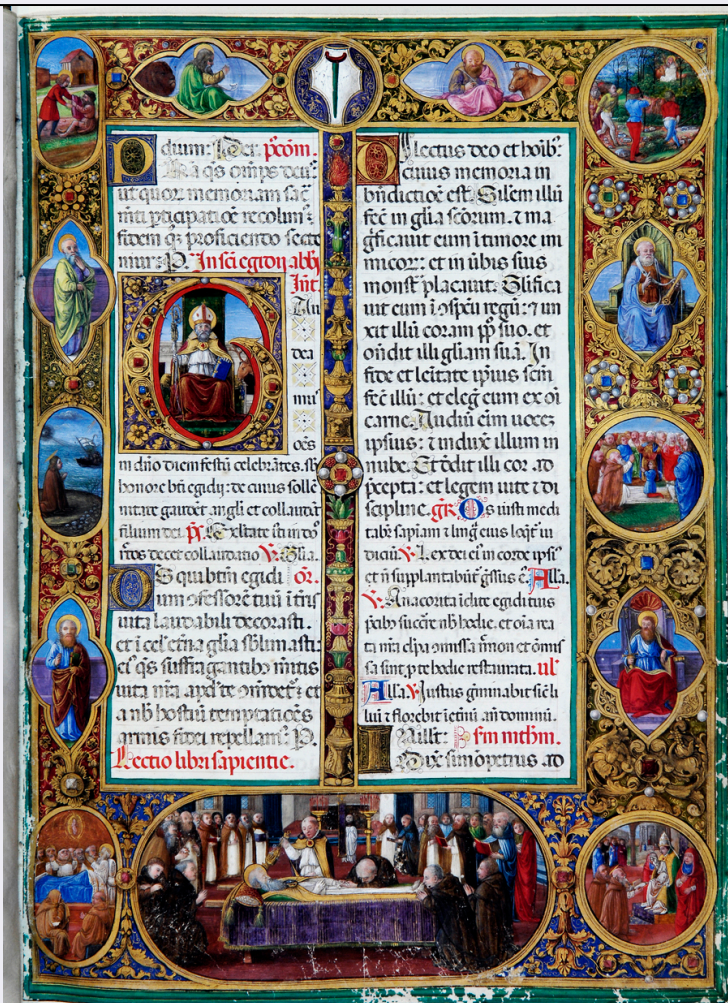 dium. Per. p̄com̄.
ut quor̄ memoriam sac̄
mti p̄ticipatiōe recolim⁹:
fidem q; proficiendo secte
mur. P. In sc̄i egidij abb̄
Int̄.
dea
mu
oēs
in dn̄o diem festū celebrātes. sb̄
honore bt̄i egidij: de cuius solle
nitate gaudēt angl̄i et collaudāt
filium dei. p̄s. Exltate iusti in do
rectos decet collaudatio. V. Gl̄ia.
DS qui bt̄m egidi or̄.
um ɔfessorē tuū ī tris
uita laudabili decorasti.
et ī cel̄ etn̄a gl̄ia sb̄limasti:
ul̄ta nr̄a
a nb̄ hostiū temptatiōēs
armis fidei repellam⁹. P.
Lectio libri sapientie.
Dilectus deo et hoib⁹:
cuius memoria in
bn̄dictiōe est. Silem illū
fec̄ in gl̄ia scōrum. ⁊ ma
gn̄ficauit eum ī timore ini
micor̄: et in ūbis suis
monst̄ placauit. Glifica
uit eum ī ɔspectu regū: ⁊ iun
xit illū coram pp̄ suo. et
on̄dit illi gl̄iam suā. In
fide et lēitate ip̄ius sc̄m
fec̄ illū: et eleg̃ eum ex oī
carne. Audiū eīm uocez
ipsius: ⁊ induxit illum in
nube. Et dēdit illi cor. ad
p̄cepta: et legem uite ⁊ di
scipline. gr̄. Os iusti medi
tab̄ sapīam ⁊ ling̃ eius loq̄t̄ iu
diciū. V. Lex dei ei⁹ in corde ipsi⁹
et n̄ supplantabūt̄ g̃ssus ei⁹. Alla.
V. Anacorita īclite egidi tuis
sa sint p̄ te hodie restaurata. ul̄
Alla. V. Iustus g̃minabit sic̄ li
liū ⁊ florebit īetnū. an̄ dominū.
In illo t: Sm̄ mth̄m.
Dix̄ simō petrus ad